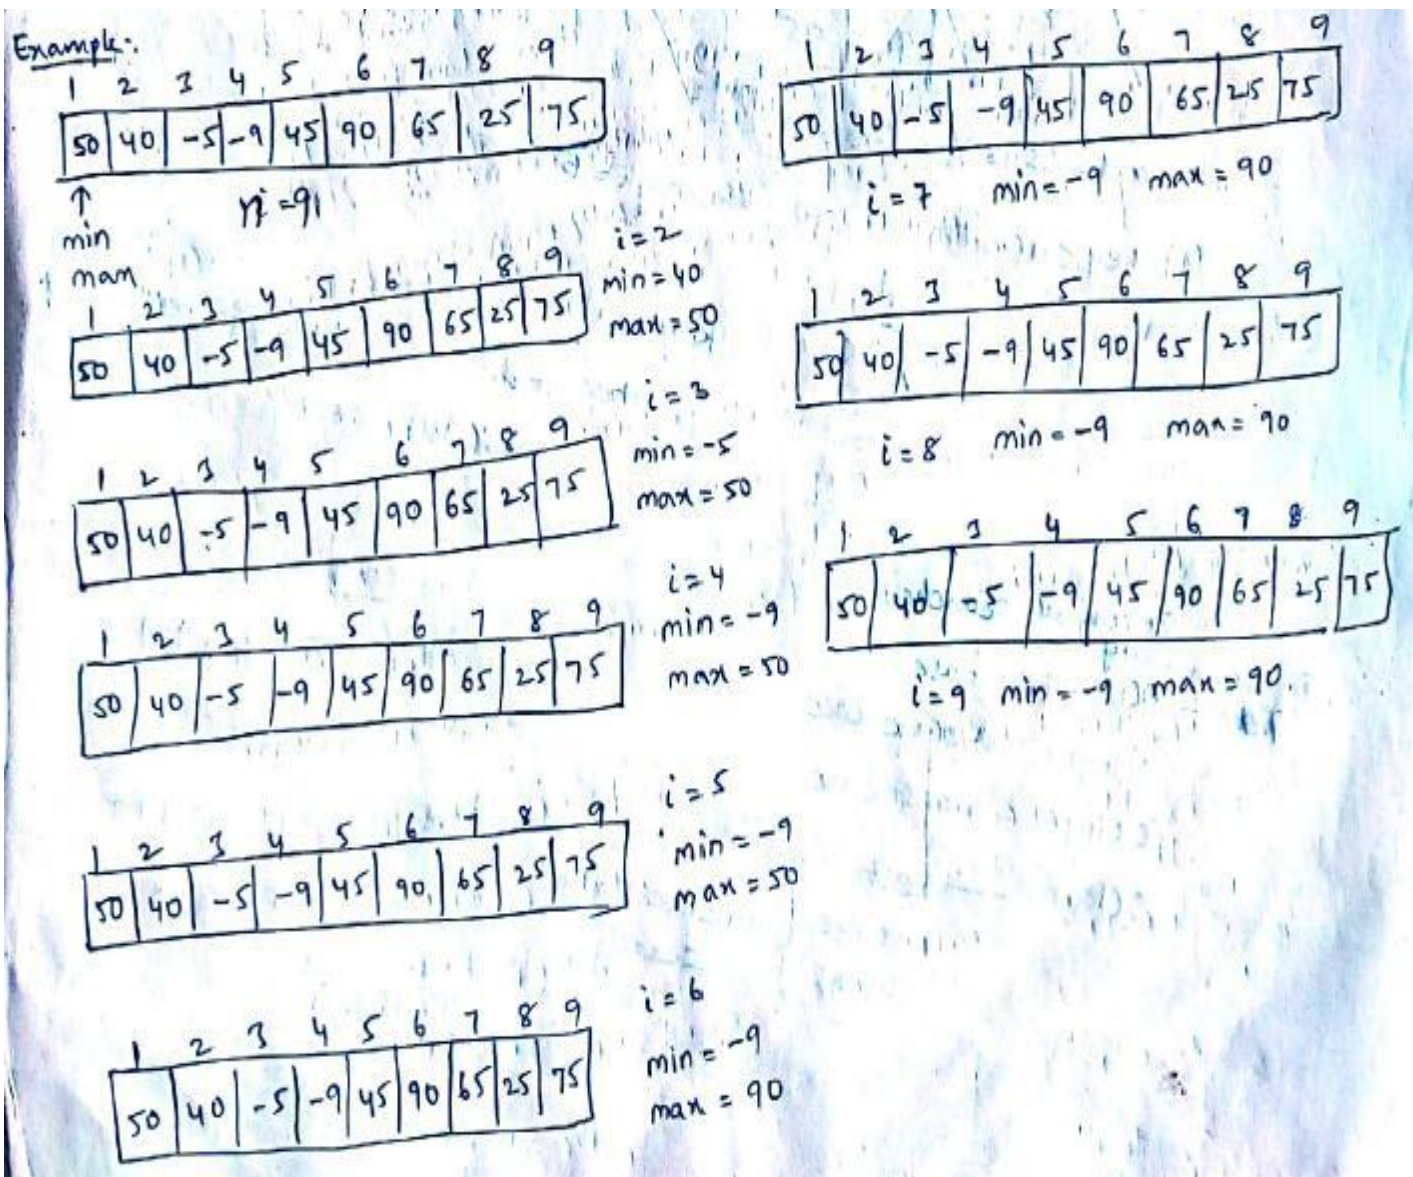 Example:
1 2 3 4 5 6 7 8 9
50 40 -5 -9 45 90 65 25 75
↑
min
max
1 2 3 4 5 6 7 8 9
50 40 -5 -9 45 90 65 25 75
i=2
min=40
max=50
1 2 3 4 5 6 7 8 9
50 40 -5 -9 45 90 65 25 75
i=3
min=-5
max=50
1 2 3 4 5 6 7 8 9
50 40 -5 -9 45 90 65 25 75
i=4
min=-9
max=50
1 2 3 4 5 6 7 8 9
50 40 -5 -9 45 90 65 25 75
i=5
min=-9
max=50
1 2 3 4 5 6 7 8 9
50 40 -5 -9 45 90 65 25 75
i=6
min=-9
max=90
1 2 3 4 5 6 7 8 9
50 40 -5 -9 45 90 65 25 75
i=7 min=-9 max=90
1 2 3 4 5 6 7 8 9
50 40 -5 -9 45 90 65 25 75
i=8 min=-9 max=90
1 2 3 4 5 6 7 8 9
50 40 -5 -9 45 90 65 25 75
i=9 min=-9 max=90